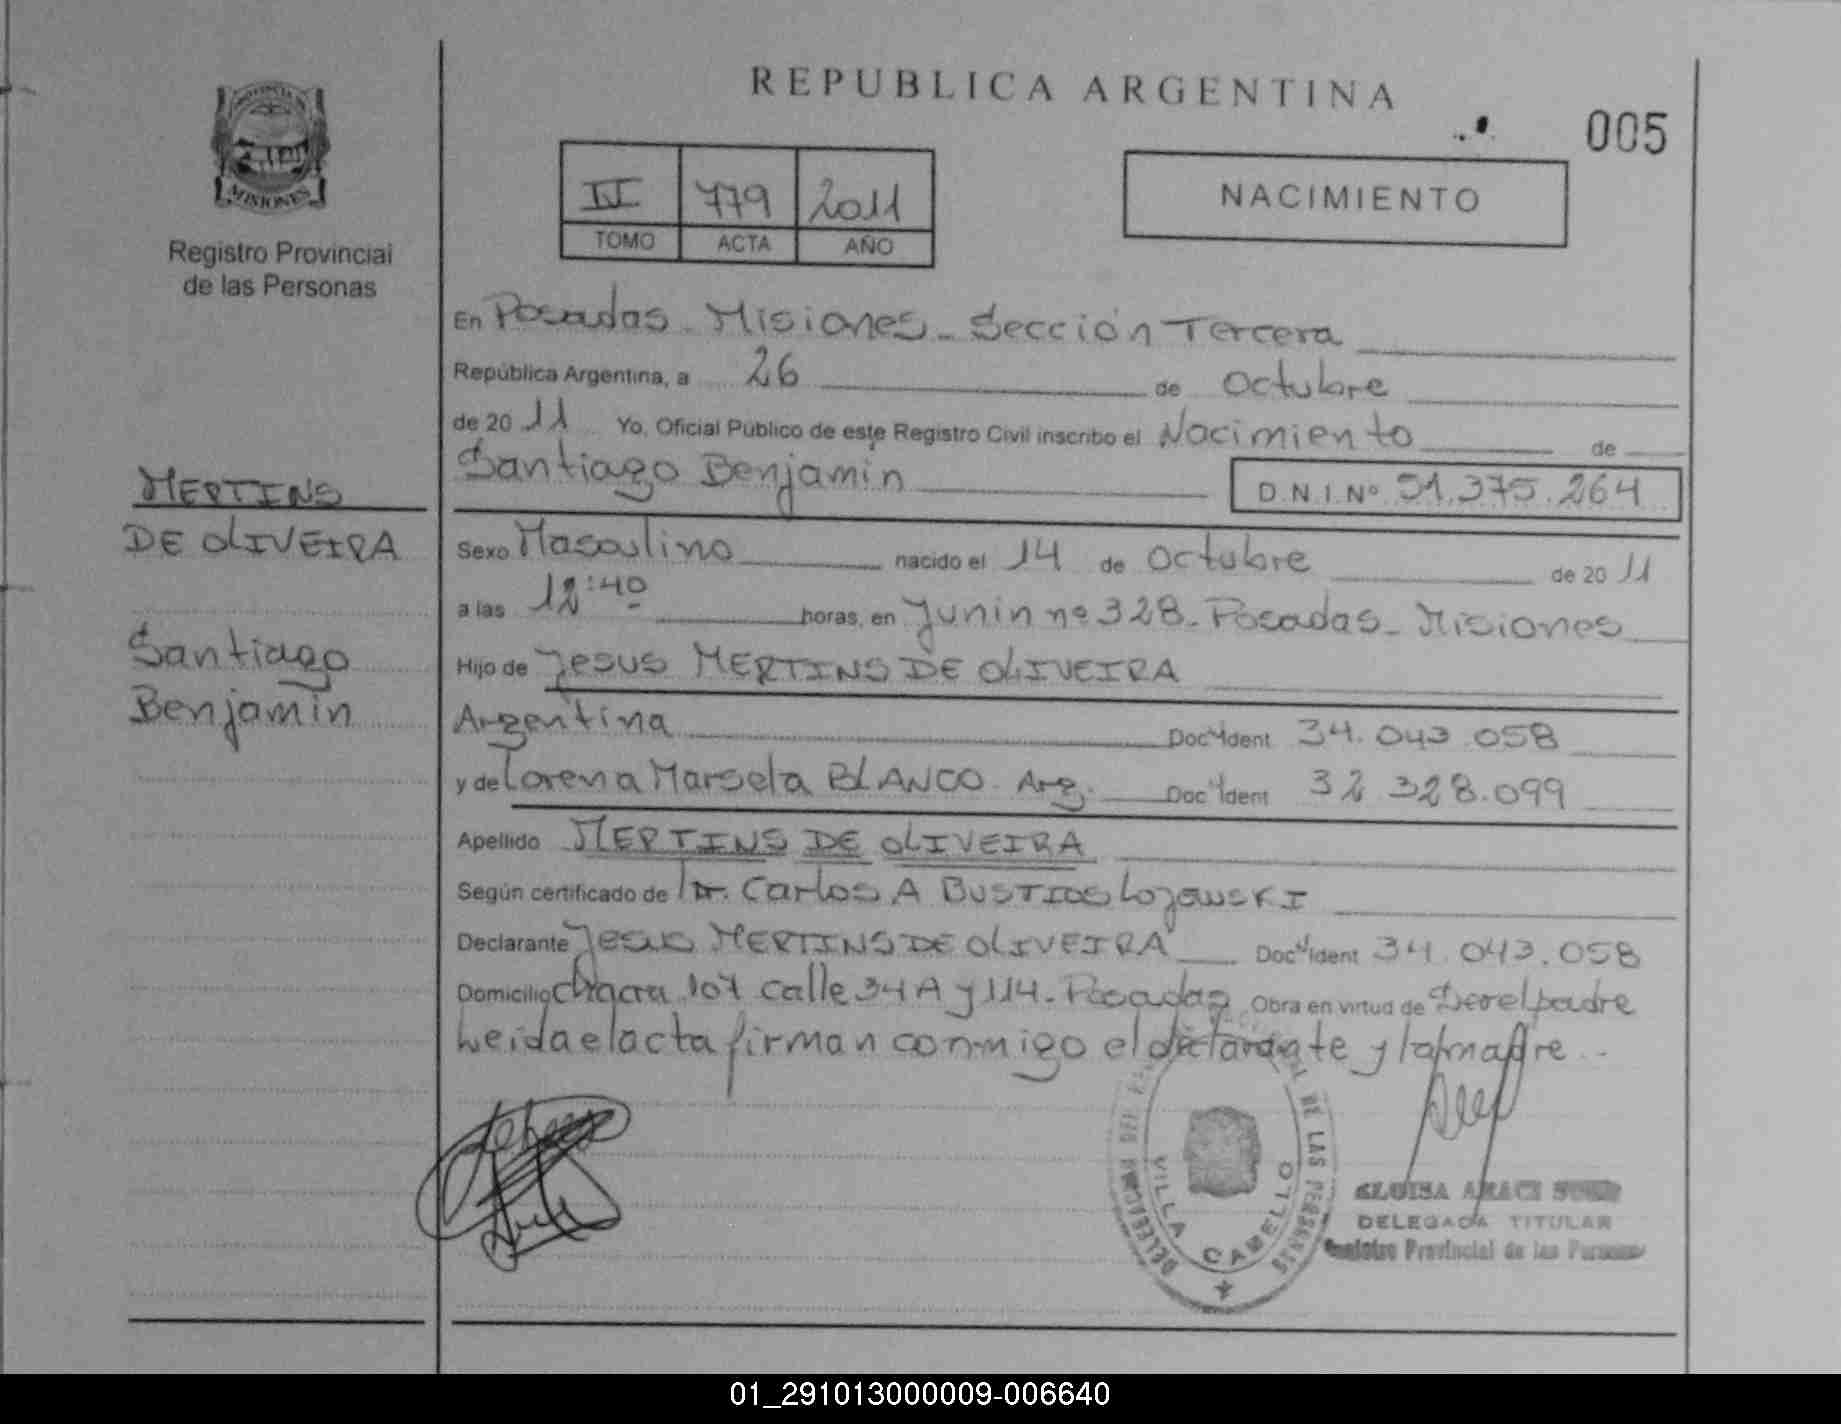 REPUBLICA ARGENTINA
005
PROVINCIA DE
MISIONES
Registro Provincial
de las Personas
IV 779 2011
TOMO ACTA AÑO
NACIMIENTO
En Posadas - Misiones - Sección Tercera
República Argentina, a 26 de Octubre
de 2011 Yo, Oficial Público de este Registro Civil inscribo el Nacimiento de
Santiago Benjamin D.N.I.Nº 51.375.264
MERTINS
DE OLIVEIRA
Santiago
Benjamin
Sexo Masculino nacido el 14 de Octubre de 2011
a las 12:40 horas, en Junin nº 328 - Posadas - Misiones
Hijo de Jesus MERTINS DE OLIVEIRA
Argentina Doc Ident 34.043.058
y de Lorena Marsela BLANCO - Arg. Doc Ident 32.328.099
Apellido MERTINS DE OLIVEIRA
Según certificado de Dr. Carlos A BUSTIOS LojewsKI
Declarante Jesus MERTINS DE OLIVEIRA Doc Ident 34.043.058
Domicilio Chacra 107 Calle 34 A y 114 - Posadas Obra en virtud de Ser el padre
Leida el acta firman conmigo el declarante y la madre
DE LAS PERSONAS
VILLA CABELLO
DELEGADA TITULAR
Registro Provincial de las Personas
01_291013000009-006640